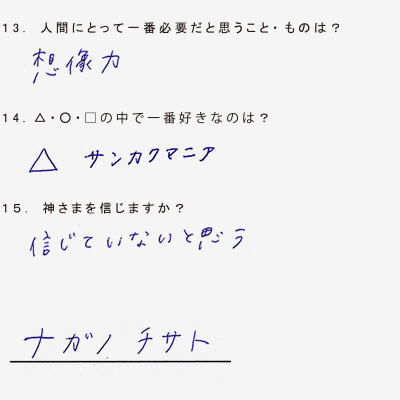 13. 人間にとって一番必要だと思うこと・ものは?
想像力
14. △・○・□の中で一番好きなのは?
△ サンカクマニア
15. 神さまを信じますか?
信じていないと思う
ナガノ チサト